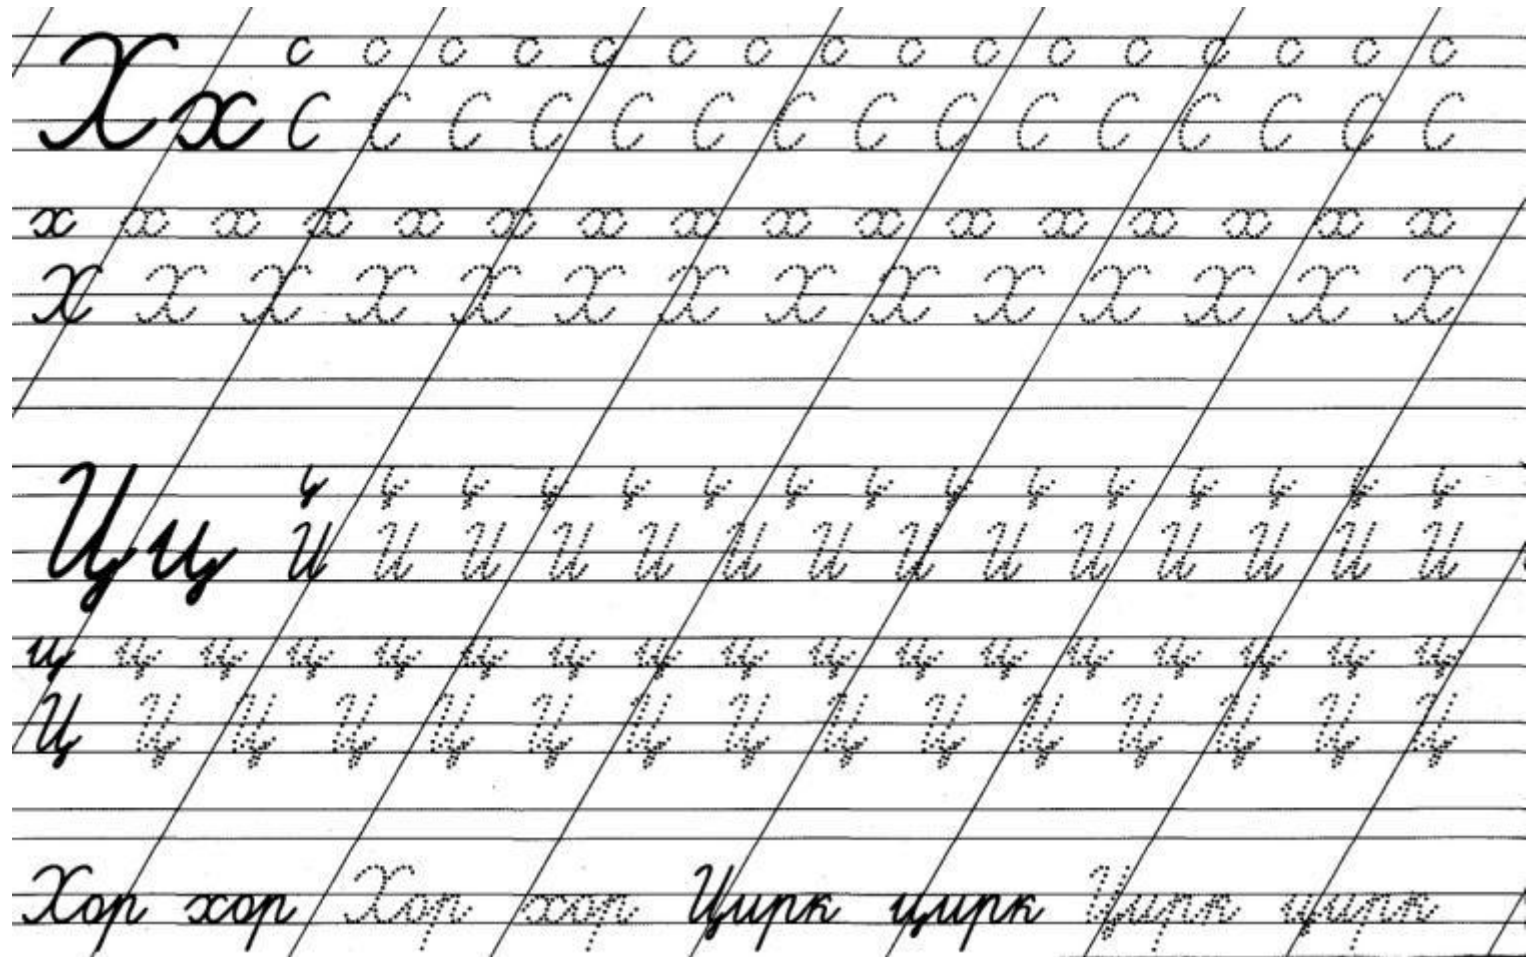 Х х
с с с с с с с с с с с с с с с с
С С С С С С С С С С С С С С С
х х х х х х х х х х х х х х х х
Х Х Х Х Х Х Х Х Х Х Х Х Х Х
Ц ц
И И И И И И И И И И И И И И
ц ц ц ц ц ц ц ц ц ц ц ц ц ц ц ц ц
Ц Ц Ц Ц Ц Ц Ц Ц Ц Ц Ц Ц Ц Ц Ц
Хор хор Хор хор Цирк цирк Цирк цирк